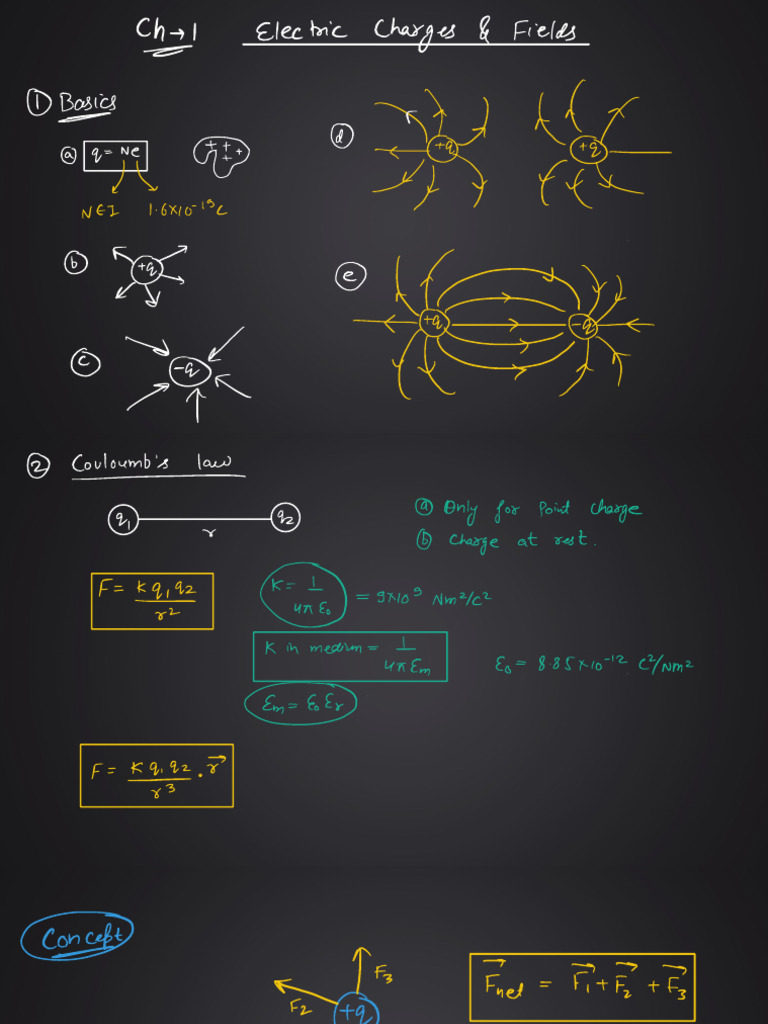 Ch→1 Electric Charges & Fields
① Basics
ⓐ q = Ne
+ + + +
N∈I 1.6×10⁻¹⁹C
ⓑ +q
ⓒ -q
ⓓ +q +q
ⓔ +q -q
② Couloumb's law
q₁ r q₂
ⓐ Only for Point charge
ⓑ charge at rest.
F = K q₁ q₂ / r²
K = 1 / 4π ε₀ = 9×10⁹ Nm²/C²
K in medium = 1 / 4π εm
ε₀ = 8.85×10⁻¹² C²/Nm²
εm = ε₀ εr
F = K q₁ q₂ / r³ . r⃗
Concept
F₃
F₂
+q
F⃗net = F⃗₁ + F⃗₂ + F⃗₃